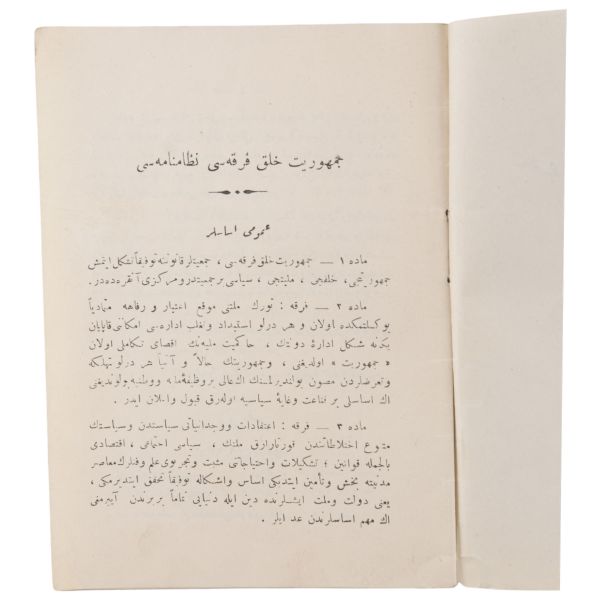 جمهوریت خلق فرقه‌سی نظامنامه‌سی
عمومی اساسلر
ماده ۱ — جمهوریت خلق فرقه‌سی، جمعیتلر قانوننه توفیقاً تشکل ایتمش
جمهوریتجی، خلقجی، ملیتجی، سیاسی بر جمعیتدر و مرکزی آنقره‌ده‌در.
ماده ۲ — فرقه: تورك ملتنی موقع اعتبار و رفاهه متمادیاً
یوكسلتمكده اولان و هر درلو استبداد و تغلب اداره‌سی امكاننی قاپایان
یكانه شكل ادارهٔ دولتك، حاكمیت ملیه‌نك اقصای تكاملی اولان
« جمهوریت » اولدیغنی، وجمهوریتك حالاً و آتیاً هر درلو تهلكه
وتعرضلردن مصون بولندیرلمسنك اك عالی بر وظیفهٔ ملیه و وطنیه بولوندیغنی
اك اساسلی بر قناعت وغایهٔ سیاسیه اوله‌رق قبول واعلان ایدر.
ماده ۳ — فرقه: اعتقادات ووجدانیاتی سیاستدن وسیاستك
متنوع اختلاطاتندن قورتارارق ملتك، سیاسی اجتماعی، اقتصادی
بالجمله قوانین؛ تشكیلات واحتیاجاتی مثبت وتجربوی علم وفنلرك معاصر
مدنیته بخش وتأمین ایتدیكی اساس واشكاله توفیقاً تحقق ایتدیرمكی،
یعنی دولت وملت ایشلرنده دین ایله دنیایی تماماً بربرندن آییرمغی
اك مهم اساسلرندن عد ایلر.